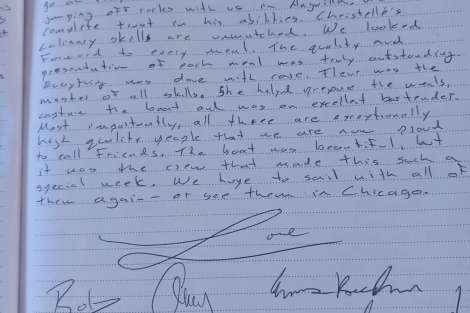 jumping off rocks with us in Anguilla,
complete trust in his abilities. Christelle's
culinary skills are unmatched. We looked
forward to every meal. The quality and
presentation of each meal was truly outstanding.
Everything was done with care. Fleur was the
master of all skills. She helped prepare the meals,
captain the boat and was an excellent bartender.
Most importantly, all three are exceptionally
high quality people that we are now proud
to call friends. The boat was beautiful, but
it was the crew that made this such a
special week. We hope to sail with all of
them again - or see them in Chicago.
Love
Bob